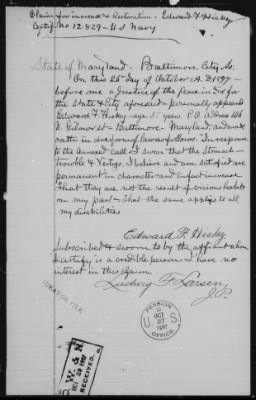 Claim for increase & Restoration - Edward F. Hisky
Certif. No 12829 - U.S. Navy
State of Maryland - Baltimore City Ss.
On this 25th day of October A.D. 1897 -
before me a Justice of the Peace in & for
the State & City aforesaid - personally appears
Edward F. Hisky - age years P.O. Address 1116
N. Gilmor St - Baltimore Maryland, and makes
oath in due form of law as follows. In response
to the annexed call I swear that the Stomach -
trouble & Vertigo, I believe and am satisfied are
permanent in character and of past increase
That they are not the result of vicious habits
on my part - That the same applies to all
my disabilities
Edward F. Hisky
Subscribed & sworn to by the affiant whom
I certify is a credible person I have no
interest in this claim
Ludwig F. Larsen
J.P.
PENSION
U S
OCT
1897
OFFICE
W. & N.
OCT 1897
RECEIVED.